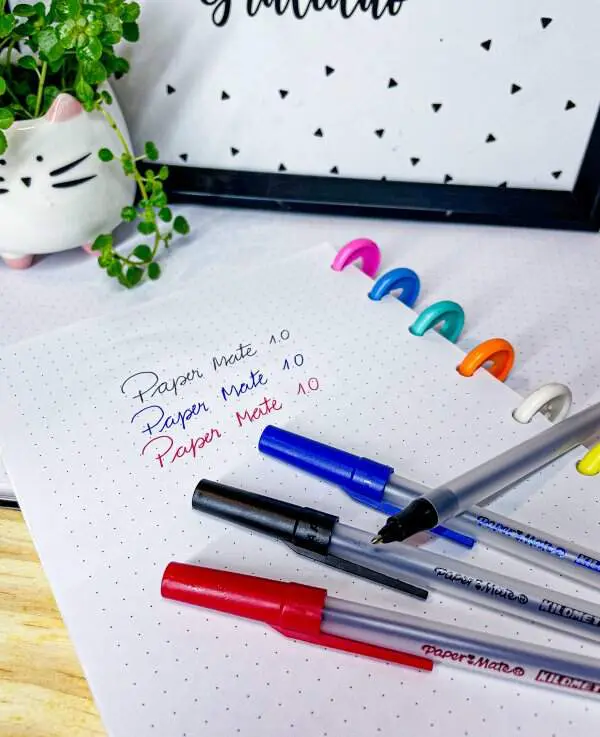 Gratidão
Paper Mate 1.0
Paper Mate 1.0
Paper Mate 1.0
PAPER MATE
PAPER MATE
PAPER MATE